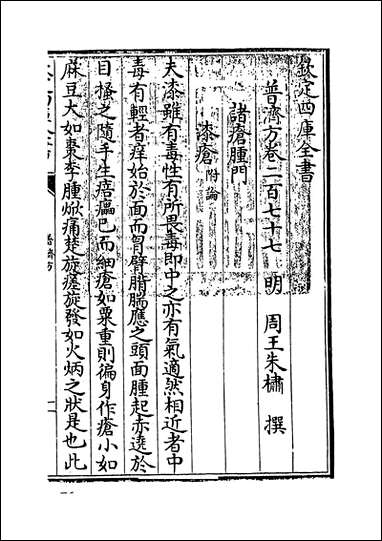 欽定四庫全書
普濟方卷二百七十七 明 周王朱橚 撰
諸瘡腫門
漆瘡 附論
夫漆雖有毒性有所畏毒即中之亦有氣適然相近者中
毒有輕者痒始於面而胷臂䏶腨應之頭面腫起赤遶於
目搔之隨手生㾦㿔已而細瘡如粟重則徧身作瘡小如
蔴豆大如棗李腫焮痛楚旋瘥旋發如火炳之狀是也此
普濟方